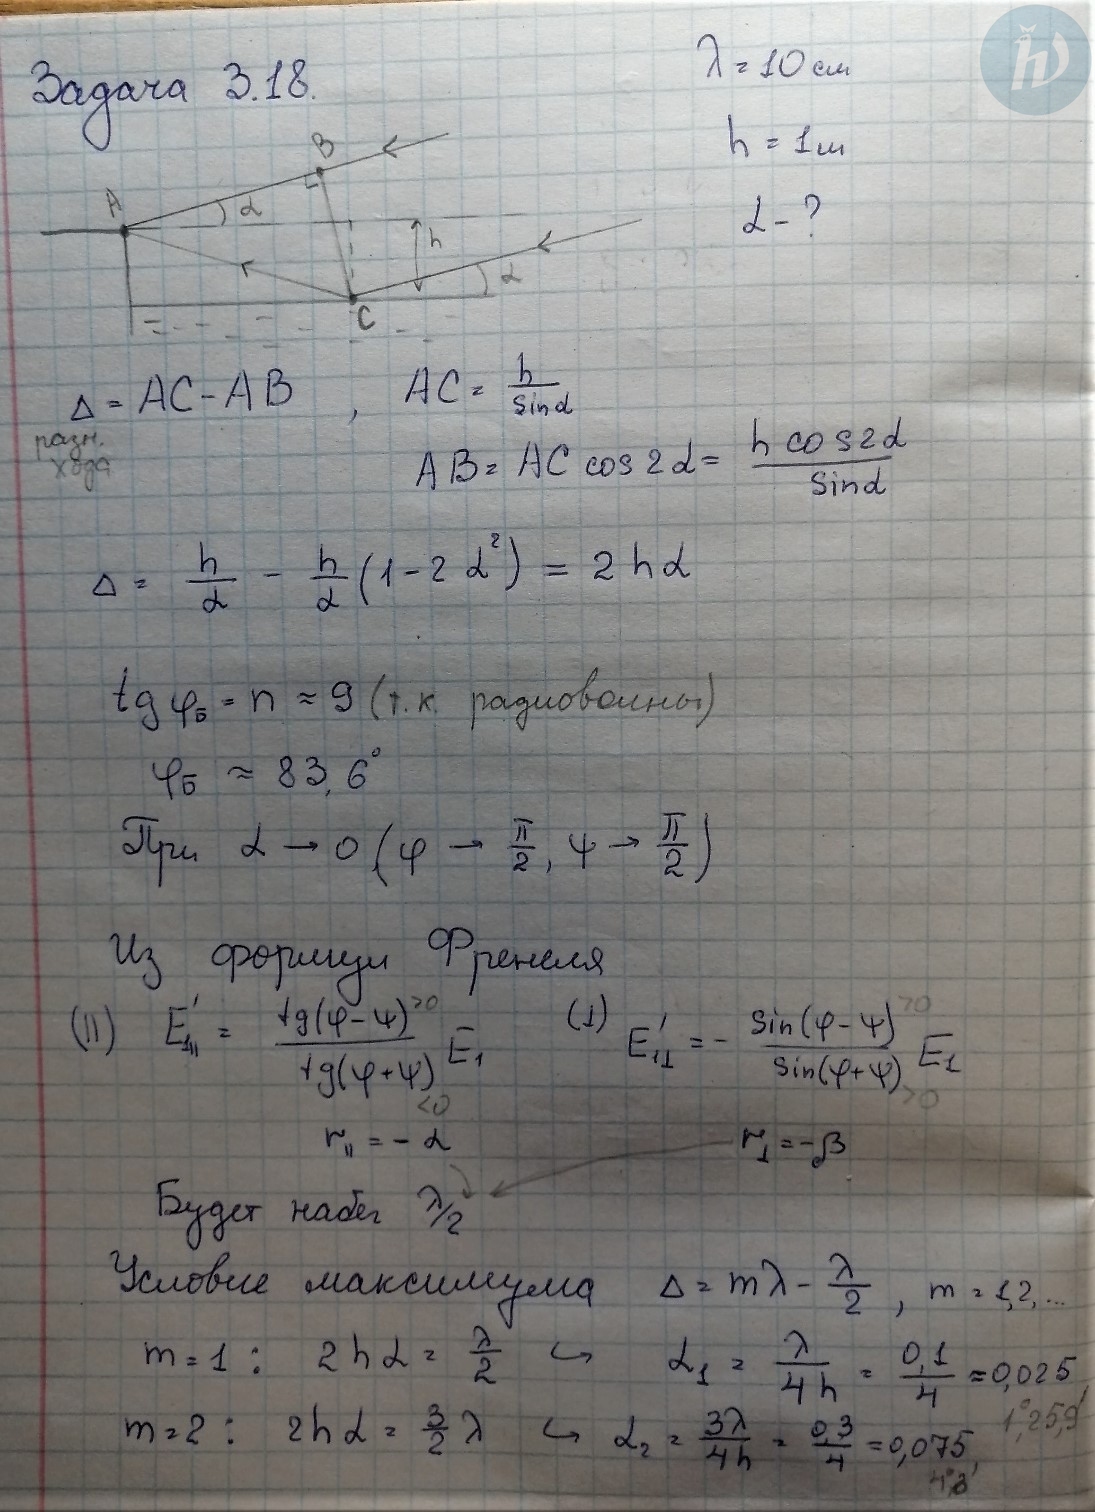 Задача 3.18.
λ = 10 см
h = 1 м
α - ?
A
B
α
h
α
C
Δ = AC - AB , AC = h/sinα
разн. хода
AB = AC cos2α = h cos2α/sinα
Δ = h/α - h/α (1 - 2α²) = 2hα
tg φ_Б = n ≈ 9 (т.к. радиоволны)
φ_Б ≈ 83,6°
При α → 0 (φ → π/2, ψ → π/2)
Из формул Френеля
(II) E'₁‖ = tg(φ-ψ)^{>0}/tg(φ+ψ)_{<0} E₁ (⊥) E'₁⊥ = - sin(φ-ψ)^{>0}/sin(φ+ψ)_{>0} E₁
r‖ = -α r⊥ = -β
Будет набег λ/2
Условие максимума Δ = mλ - λ/2 , m = 1,2,...
m = 1 : 2hα = λ/2 ↪ α₁ = λ/4h = 0,1/4 = 0,025,
1°25,9'
m = 2 : 2hα = 3/2 λ ↪ α₂ = 3λ/4h = 0,3/4 = 0,075,